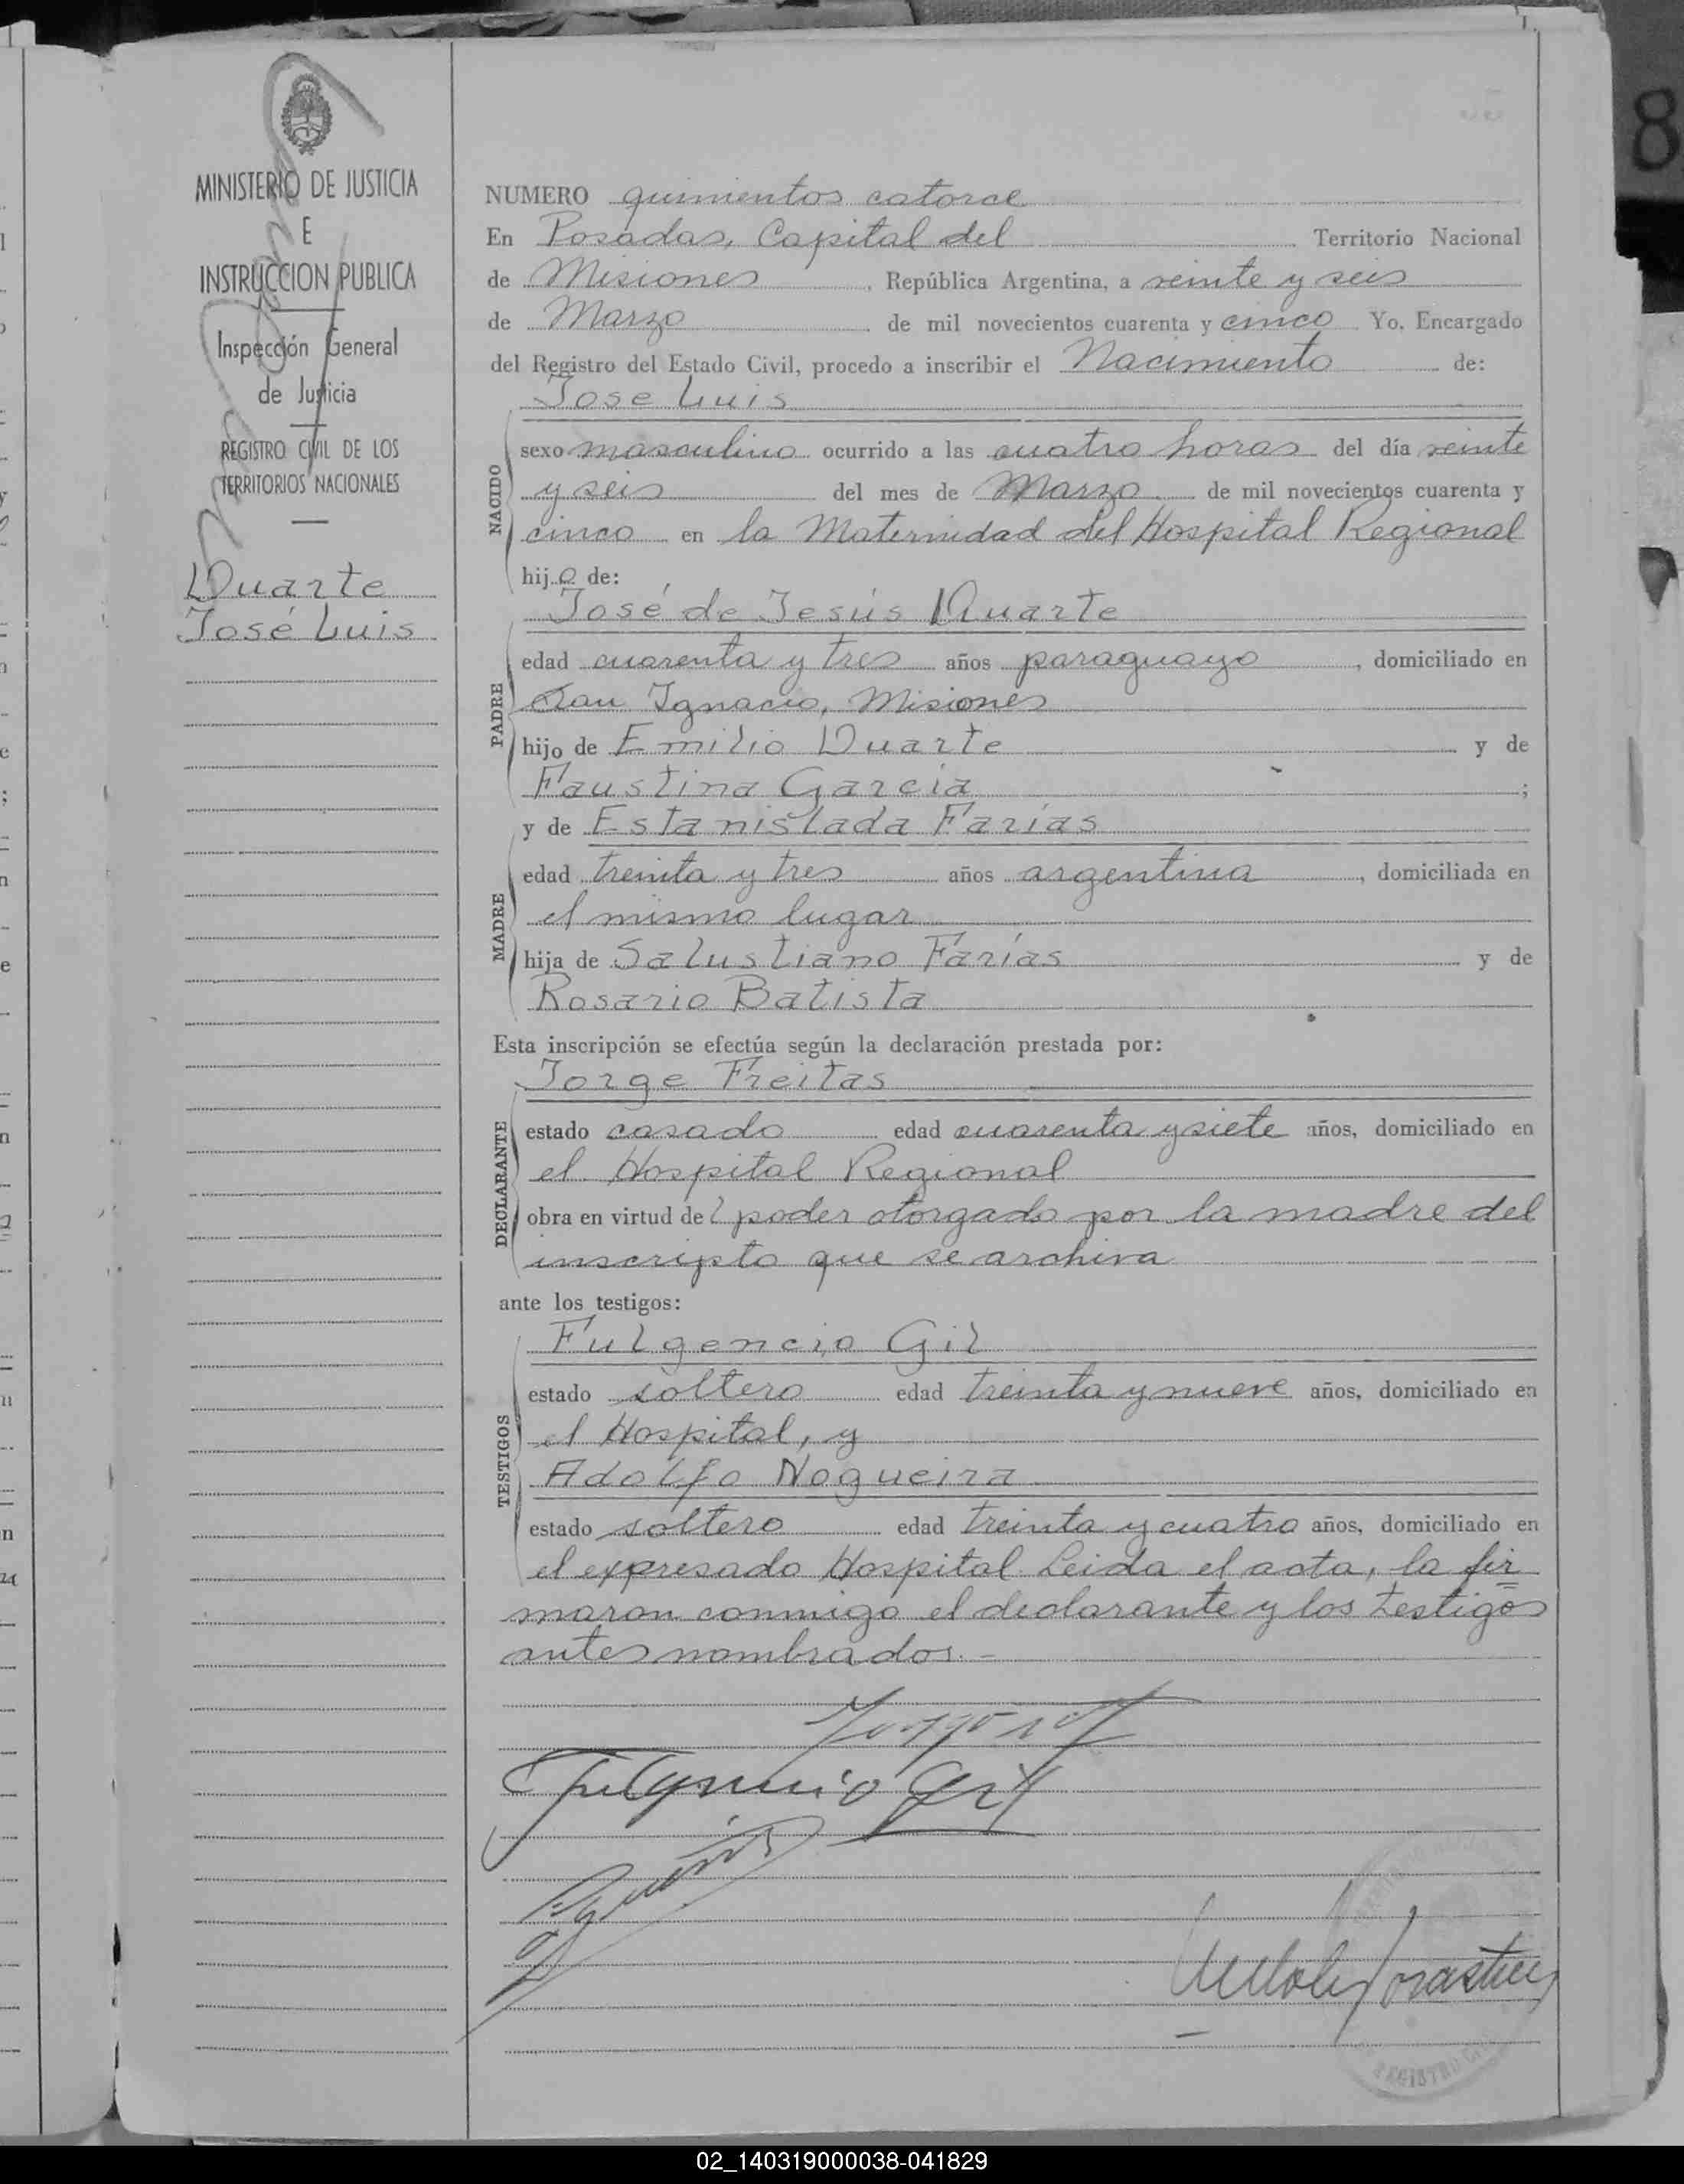 MINISTERIO DE JUSTICIA
E
INSTRUCCION PUBLICA
Inspección General
de Justicia
REGISTRO CIVIL DE LOS
TERRITORIOS NACIONALES
Duarte
José Luis
8
NUMERO quinientos catorce
En Posadas, Capital del Territorio Nacional
de Misiones, República Argentina, a veinte y seis
de Marzo de mil novecientos cuarenta y cinco Yo, Encargado
del Registro del Estado Civil, procedo a inscribir el Nacimiento de:
Jose Luis
NACIDO
sexo masculino ocurrido a las cuatro horas del día veinte
y seis del mes de Marzo de mil novecientos cuarenta y
cinco en la Maternidad del Hospital Regional
hijo de:
José de Jesús Duarte
PADRE
edad cuarenta y tres años paraguayo, domiciliado en
San Ignacio, Misiones
hijo de Emilio Duarte y de
Faustina García;
y de Estanislada Farías
MADRE
edad treinta y tres años argentina, domiciliada en
el mismo lugar
hija de Salustiano Farías y de
Rosario Batista
Esta inscripción se efectúa según la declaración prestada por:
Jorge Freitas
DECLARANTE
estado casado edad cuarenta y siete años, domiciliado en
el Hospital Regional
obra en virtud del poder otorgado por la madre del
inscripto que se archiva
ante los testigos:
Fulgencio Gil
TESTIGOS
estado soltero edad treinta y nueve años, domiciliado en
el Hospital, y
Adolfo Nogueira
estado soltero edad treinta y cuatro años, domiciliado en
el expresado Hospital. Leida el acta, la fir
maron conmigo el declarante y los testigos
antes nombrados.-
Fulgencio Gil
REGISTRO
02_140319000038-041829